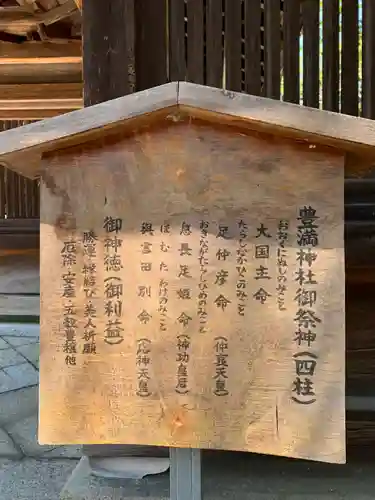 豊満神社御祭神(四柱)
おおくにぬしのみこと
大国主命
たらしなかひこのみこと
足仲彦命 (仲哀天皇)
おきながたらしひめのみこと
息長足姫命 (神功皇后)
ほむたわけのみこと
與雲田別命 (応神天皇)
御神徳(御利益)
勝運・縁結び・美人祈願
厄除・安産・五穀豊穣他